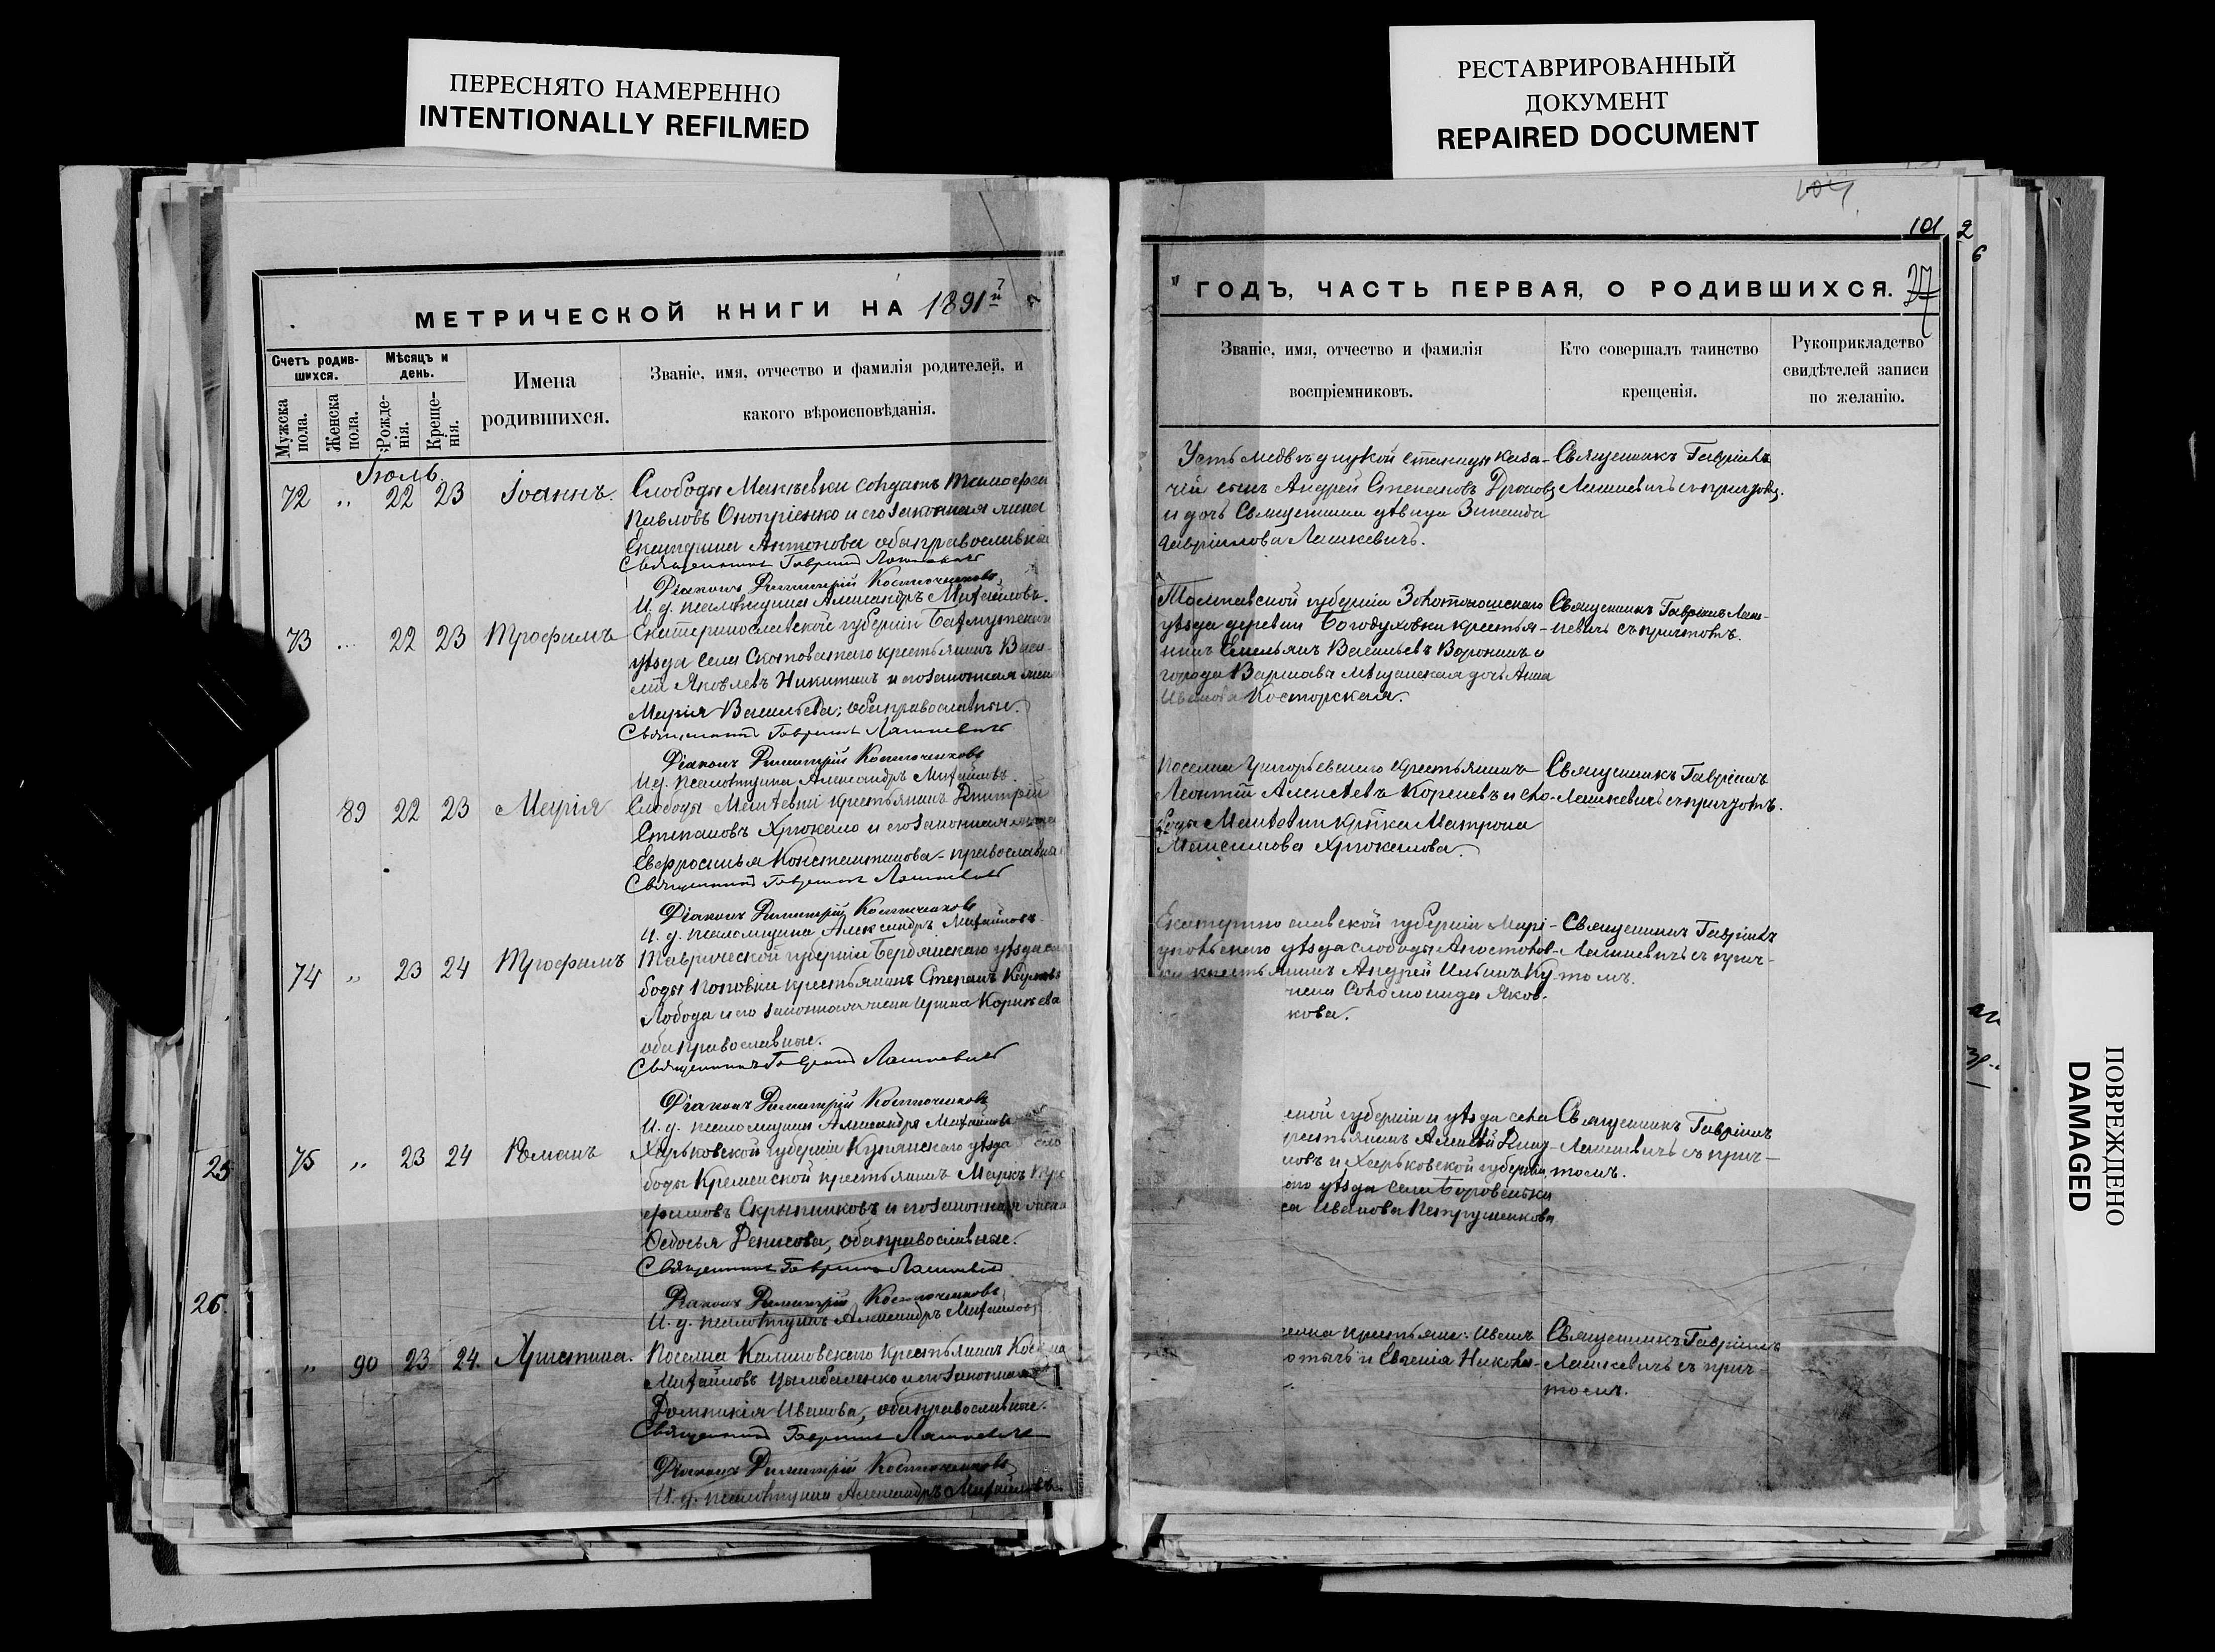 ПЕРЕСНЯТО НАМЕРЕННО
INTENTIONALLY REFILMED
РЕСТАВРИРОВАННЫЙ
ДОКУМЕНТ
REPAIRED DOCUMENT
МЕТРИЧЕСКОЙ КНИГИ НА 1891й
Счетъ родив-
шихся.
Мѣсяцъ и
день.
Мужска
пола.
Женска
пола.
Рожде-
нія.
Креще-
нія.
Имена
родившихся.
Званіе, имя, отчество и фамилія родителей, и
какого вѣроисповѣданія.
Іюль
72 " 22 23 Іоаннъ. Слободы Макѣевки солдатъ
Павловъ Оноприенко и его законная жена
Екатерина Антонова оба православные
Священникъ Гавріилъ Лашкевичъ
Діаконъ Димитрій Костюченковъ
И. д. псаломщика Александръ Михайловъ.
73 " 22 23 Трофимъ Екатеринославской губерніи Бахмутскаго
уѣзда села Скотоватаго крестьянинъ Васи-
лій Яковлевъ Никитинъ и его законная жена
Марія Васильева; оба православные.
Священникъ Гавріилъ Лашкевичъ
Діаконъ Димитрій Костюченковъ
И. д. псаломщика Александръ Михайловъ.
89 22 23 Марія Слободы Макѣевки крестьянинъ Дмитрій
Степановъ Хрюкало и его законная жена
Евфросинья Константинова - православные
Священникъ Гавріилъ Лашкевичъ
Діаконъ Димитрій Костюченковъ
И. д. псаломщика Александръ Михайловъ.
74 " 23 24 Трофимъ Таврической губерніи Бердянскаго уѣзда сло
боды Поповки крестьянинъ Степанъ
Лобода и его законная жена Ирина Корнѣева
оба православные.
Священникъ Гавріилъ Лашкевичъ
Діаконъ Димитрій Костюченковъ
И. д. псаломщика Александръ Михайловъ
75 " 23 24 Романъ Харьковской губерніи Купянскаго уѣзда сло
боды Кременской крестьянинъ Маркъ
Скрыпниковъ и его законная жена
Ѳедосья Денисова, оба православные.
Священникъ Гавріилъ Лашкевичъ
Діаконъ Димитрій Костюченковъ
И. д. псаломщика Александръ Михайловъ
" 90 23 24. Христина. Поселка Калиновскаго крестьянинъ
Михайловъ Цымбаленко и его законная
Домникія Иванова, оба православные.
Священникъ Гавріилъ Лашкевичъ
Діаконъ Димитрій Костюченковъ
И. д. псаломщика Александръ Михайловъ.
25
26.
101
27
ГОДЪ, ЧАСТЬ ПЕРВАЯ, О РОДИВШИХСЯ.
Званіе, имя, отчество и фамилія
воспріемниковъ.
Кто совершалъ таинство
крещенія.
Рукоприкладство
свидѣтелей записи
по желанію.
Усть медвѣдицкой станицы каза- Священникъ Гавріилъ
чій сынъ Андрей Степановъ Дроновъ Лашкевичъ съ причтомъ.
и дочь Священника дѣвица Зинаида
Гавріилова Лашкевичъ.
Полтавской губерніи Золотоношскаго Священникъ Гавріилъ Лаш-
уѣзда деревни Богодуховки крестья- кевичъ съ причтомъ.
нинъ Емельянъ Васильевъ Воронинъ и
города Варшавы мѣщанская дочь Анна
Иванова Косторская.
Поселка Григорьевскаго крестьянинъ Священникъ Гавріилъ
Леонтій Алексѣевъ Кореневъ и сло- Лашкевичъ съ причтомъ.
боды Макѣевки кр-ка Матрона
Максимова Хрюкалова.
Екатеринославской губерніи Марі- Священникъ Гавріилъ
упольскаго уѣзда слободы Апостолов- Лашкевичъ съ прич-
ки крестьянинъ Андрей Ильинъ Ку- томъ.
Соломонида Яков.
кова.
ской губерніи и уѣзда села Священникъ Гавріилъ
крестьянинъ Алексѣй Лашкевичъ съ прич-
новъ и Харьковской губерніи, томъ.
ого уѣзда села Боровеньки
са Иванова Петрушенкова
елка крестьяне: Иванъ Священникъ Гавріилъ
и Евгенія Никола- Лашкевичъ съ прич-
томъ.
ПОВРЕЖДЕНО
DAMAGED